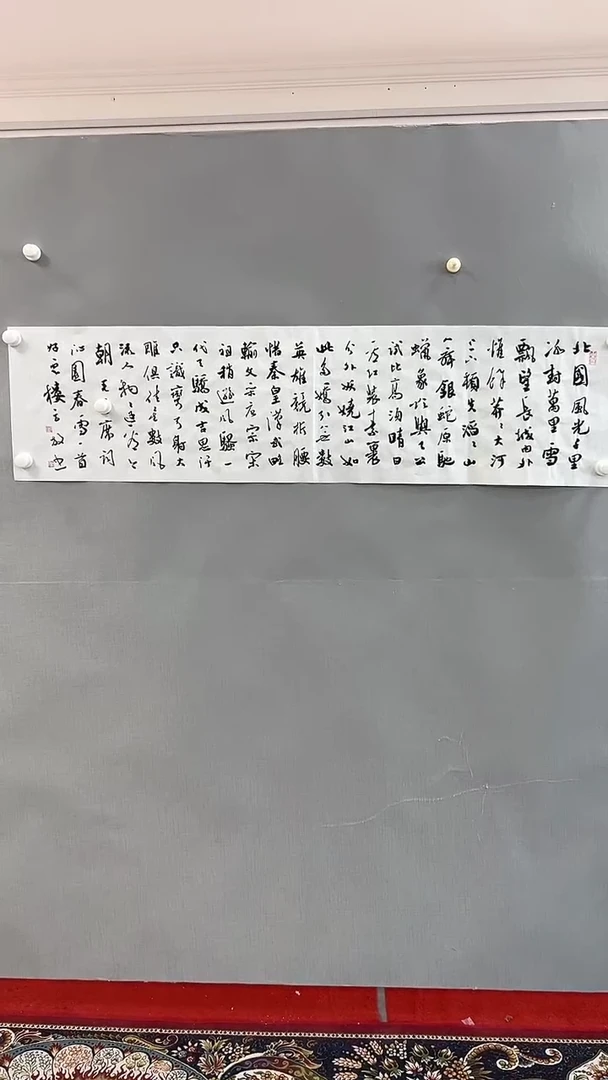 北國風光千里
冰封萬里雪
飄望長城内外
惟餘莽々大河
上下頓失滔々山
舞銀蛇原馳
蠟象欲與天公
試比高須晴日
看紅裝素裹
分外妖嬈江山如
此多嬌引無數
英雄競折腰
惜秦皇漢武略
輸文采唐宗宋
祖稍遜風騷一
代天驕成吉思汗
只識彎弓射大
雕俱往矣數風
流人物還看今
朝毛主席詞
沁園春雪一首
樓主